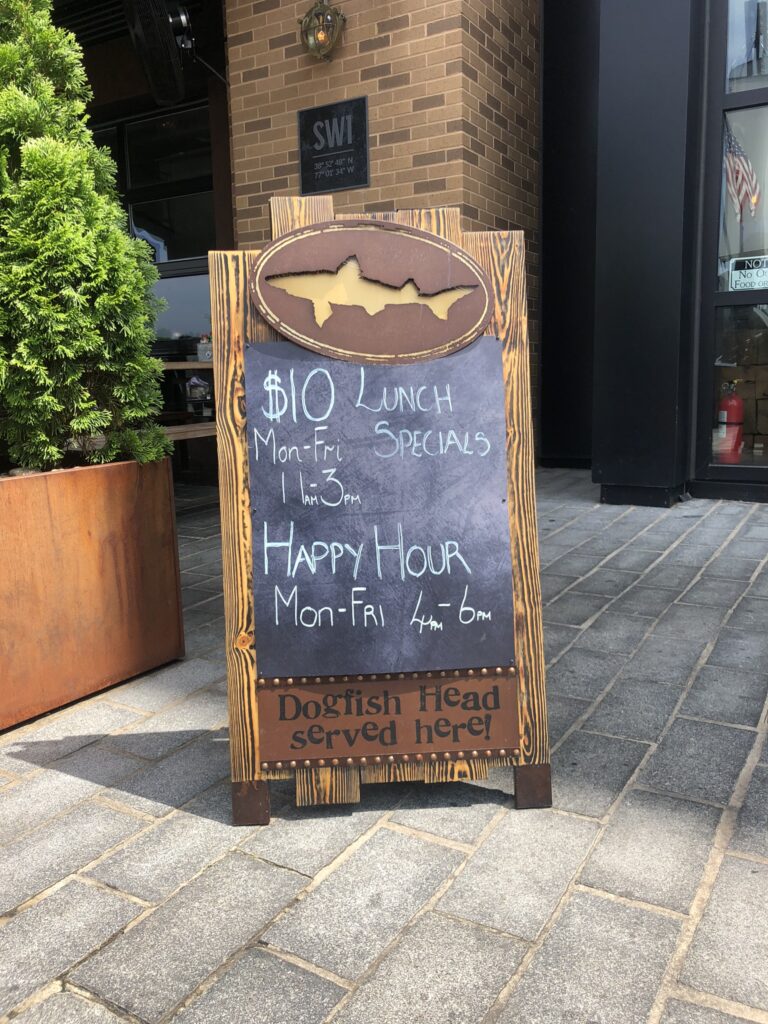 SWI
38° 52' 48" N
77° 01' 34" W
$10 LUNCH
Mon-Fri SPECIALS
11AM-3PM
HAPPY HOUR
MON-FRI 4PM-6PM
Dogfish Head
served here!
NO
FOOD OR